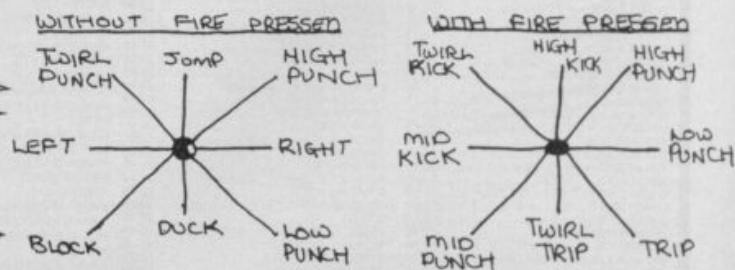 WITHOUT FIRE PRESSED
TWIRL
PUNCH
JUMP
HIGH
PUNCH
LEFT
RIGHT
BLOCK
DUCK
LOW
PUNCH
WITH FIRE PRESSED
TWIRL
KICK
HIGH
KICK
HIGH
PUNCH
MID
KICK
LOW
PUNCH
MID
PUNCH
TWIRL
TRIP
TRIP